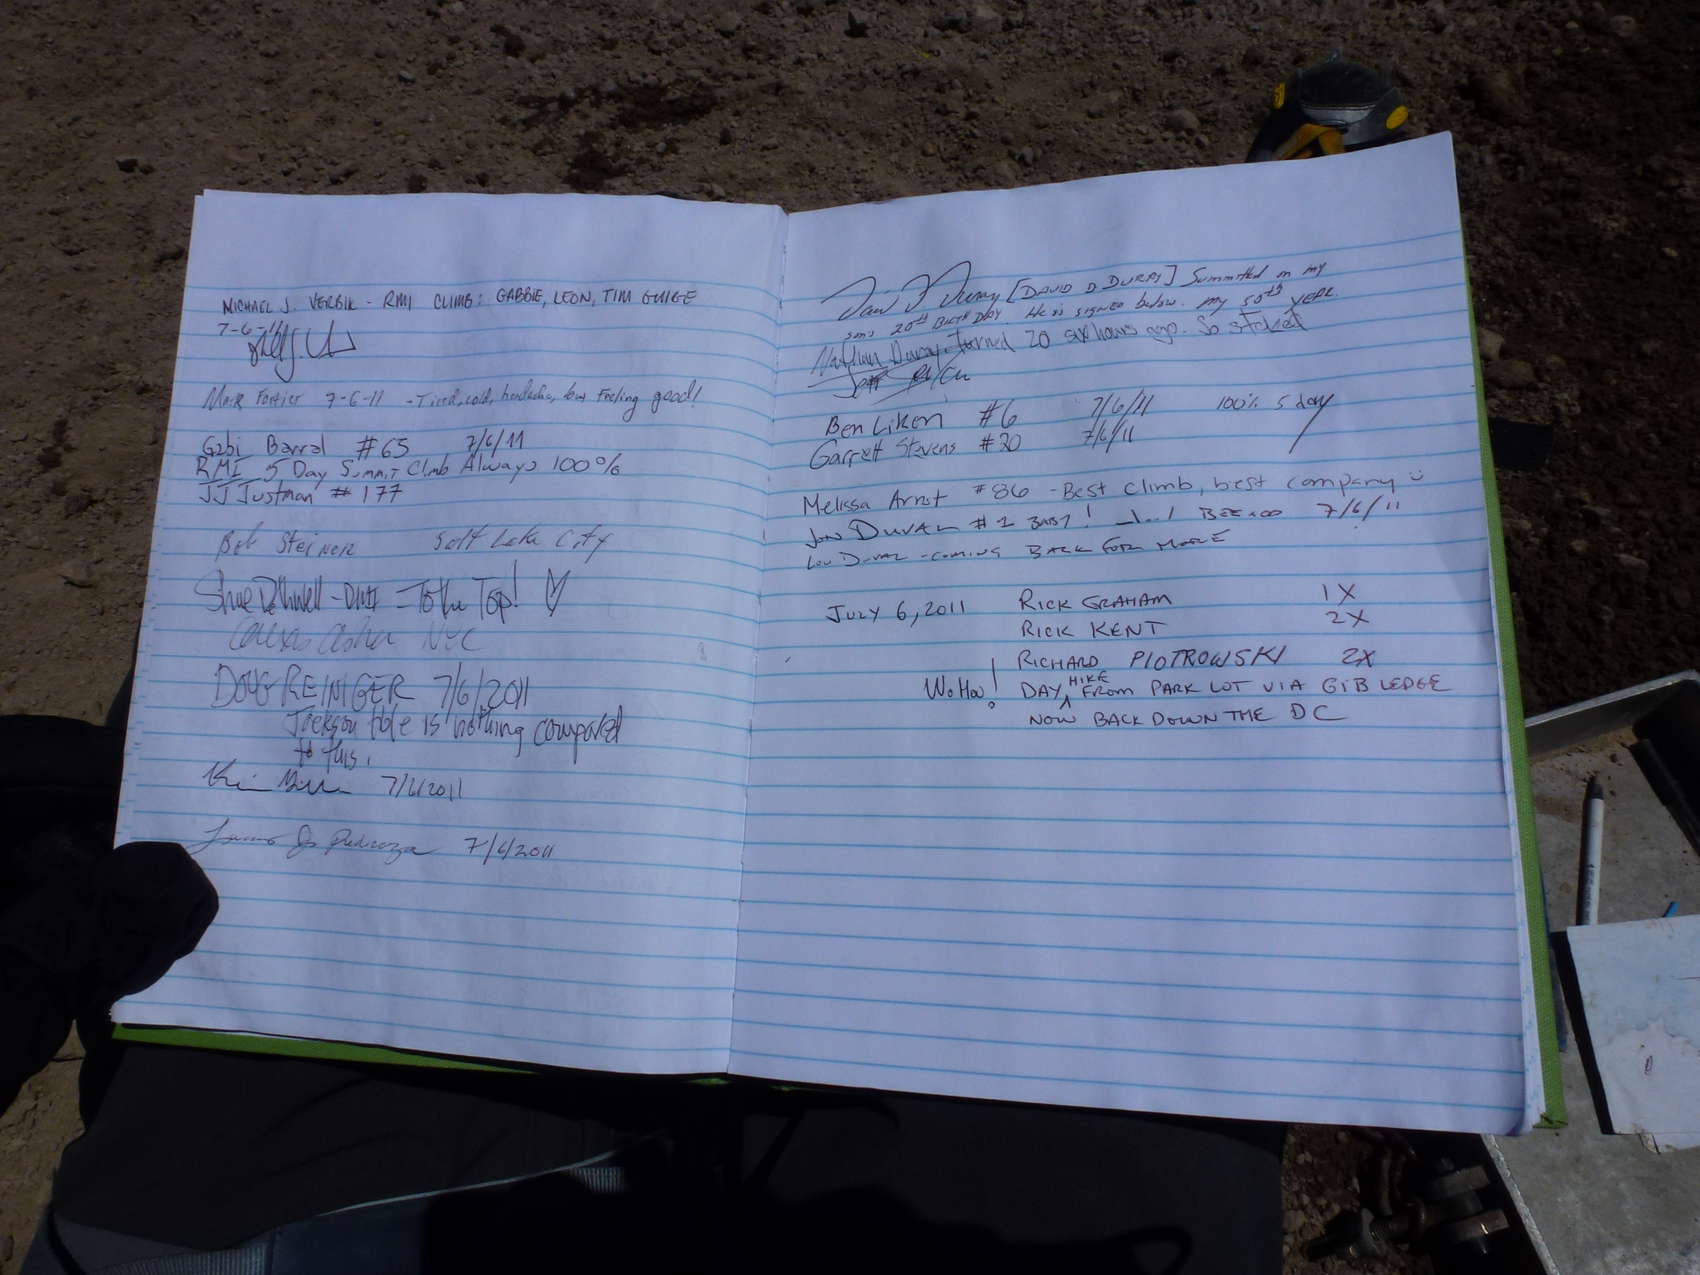 MICHAEL J. VERBIK - RMI CLIMB: GABBIE, LEON, TIM GUIGE
7-6-11
Mark Fortier 7-6-11 - Tired, cold, headache, but feeling good!
Gabi Barral #65 7/6/11
RMI 5 Day Summit Climb Always 100%
JJ Justman # 177
Bob Steiner Salt Lake City
To the Top! ♡
NYC
DOUG REINIGER 7/6/2011
Jackson Hole is nothing compared
to this.
7/6/2011
Pedroza 7/6/2011
[DAVID D DURAY] Summitted on my
son's 20th BIRTHDAY He is signed below. my 50th year.
Nathan Duray, turned 20 six hours ago. So stoked
Ben Liken #6 7/6/11 100% 5 day
Garrett Stevens #20 7/6/11
Melissa Arnot #86 - Best climb, best company ☺
Jon DUVAL #1 BABY! 7/6/11
Lou DUVAL - COMING BACK FOR MORE
JULY 6, 2011 RICK GRAHAM 1X
RICK KENT 2X
RICHARD PIOTROWSKI 2X
WoHoo! DAY HIKE FROM PARK LOT VIA GIB LEDGE
NOW BACK DOWN THE DC